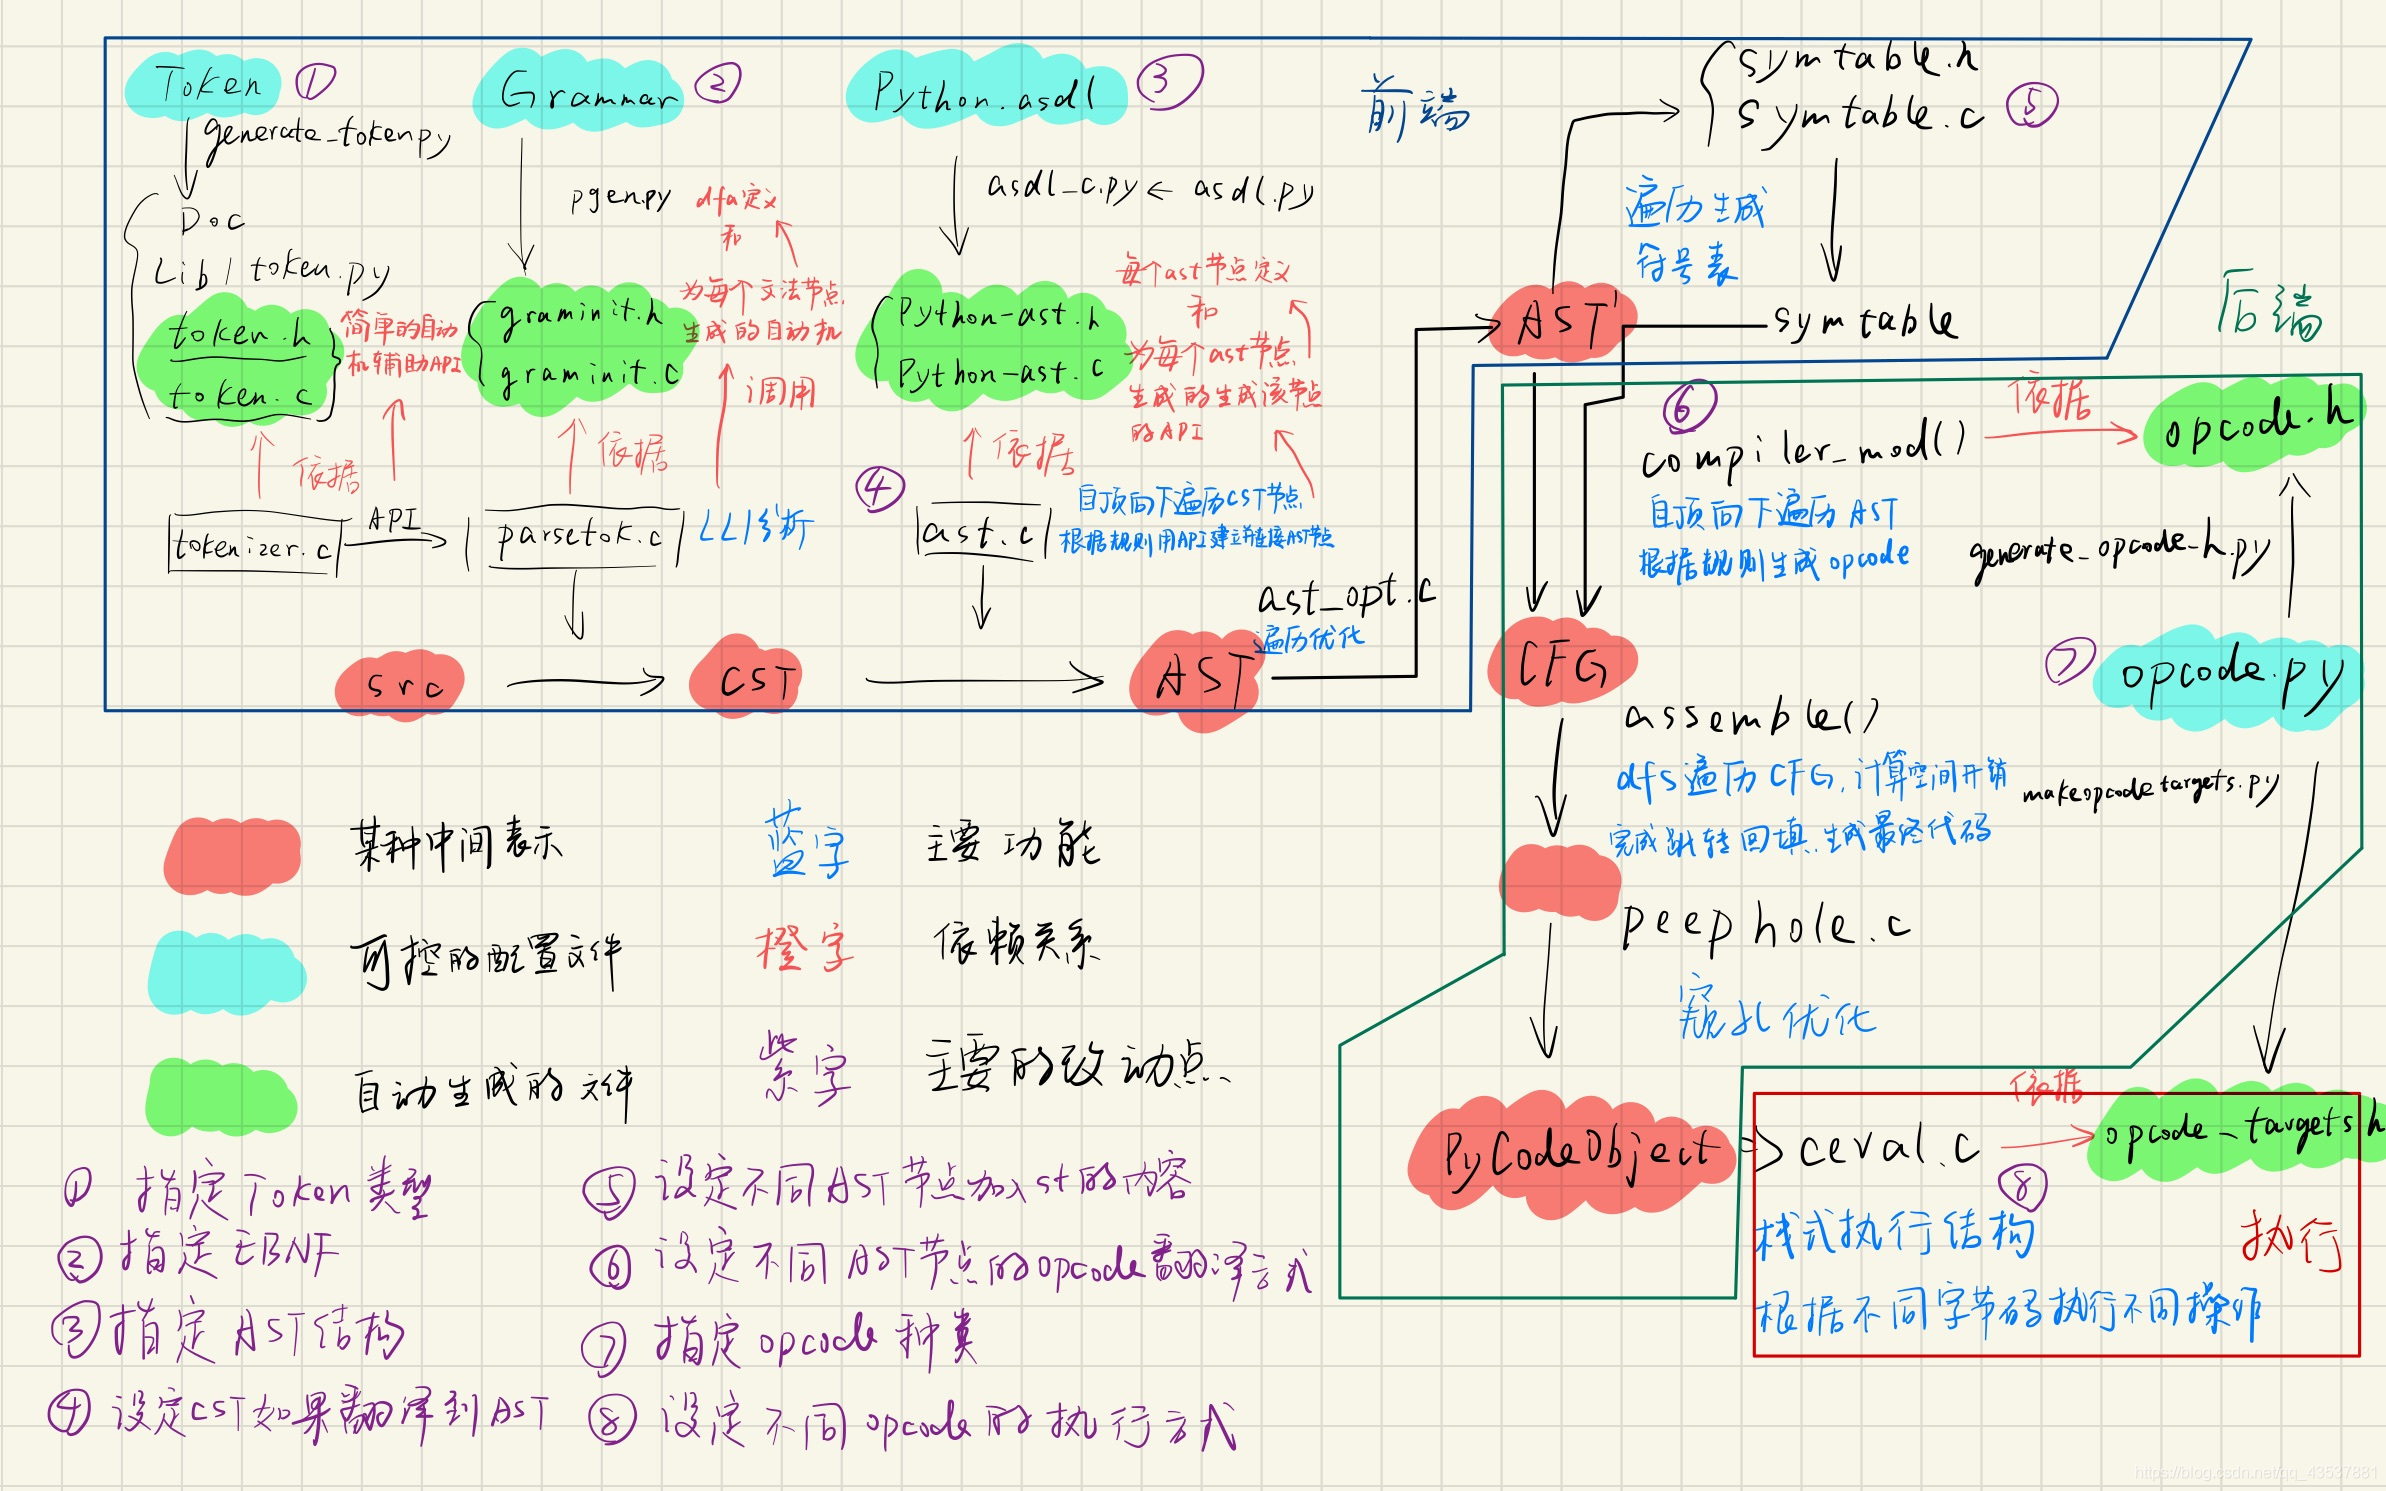 Token ①
Grammar ②
Python.asdl ③
前端
symtable.h
symtable.c ⑤
generate_token.py
Doc
Lib/token.py
token.h
token.c
简单的自动
机辅助API
依据
tokenizer.c
API
pgen.py
graminit.h
graminit.c
dfa定义
和
为每个文法节点
生成的自动机
调用
依据
parsetok.c
LL1分析
asdl_c.py ← asdl.py
Python-ast.h
Python-ast.c
每个ast节点定义
和
为每个ast节点
生成的生成该节点
的API
依据
④
ast.c
自顶向下遍历CST节点
根据规则用API建立并链接AST节点
src
CST
AST
ast_opt.c
遍历优化
AST'
遍历生成
符号表
symtable
后端
⑥
compiler_mod()
依据
opcode.h
自顶向下遍历AST
根据规则生成opcode
generate_opcode_h.py
⑦
opcode.py
CFG
assemble()
dfs遍历CFG,计算空间开销
完成跳转回填,生成最终代码
makeopcodetargets.py
peephole.c
窥孔优化
PyCodeObject
ceval.c
依据
opcode_targets.h
⑧
栈式执行结构
执行
根据不同字节码执行不同操作
某种中间表示
蓝字 主要功能
可控的配置文件
橙字 依赖关系
自动生成的文件
紫字 主要的改动点
① 指定Token类型
② 指定EBNF
③ 指定AST结构
④ 设定CST如果翻译到AST
⑤ 设定不同AST节点加入st的内容
⑥ 设定不同AST节点的opcode翻译方式
⑦ 指定opcode种类
⑧ 设定不同opcode的执行方式
https://blog.csdn.net/qq_43537881